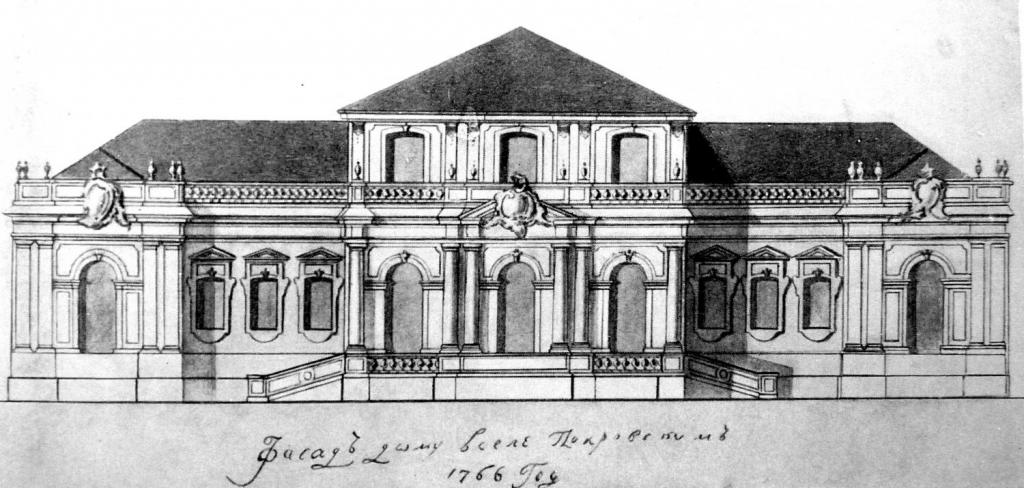 Фасадъ дому вселе Покровскомъ
1766 Год